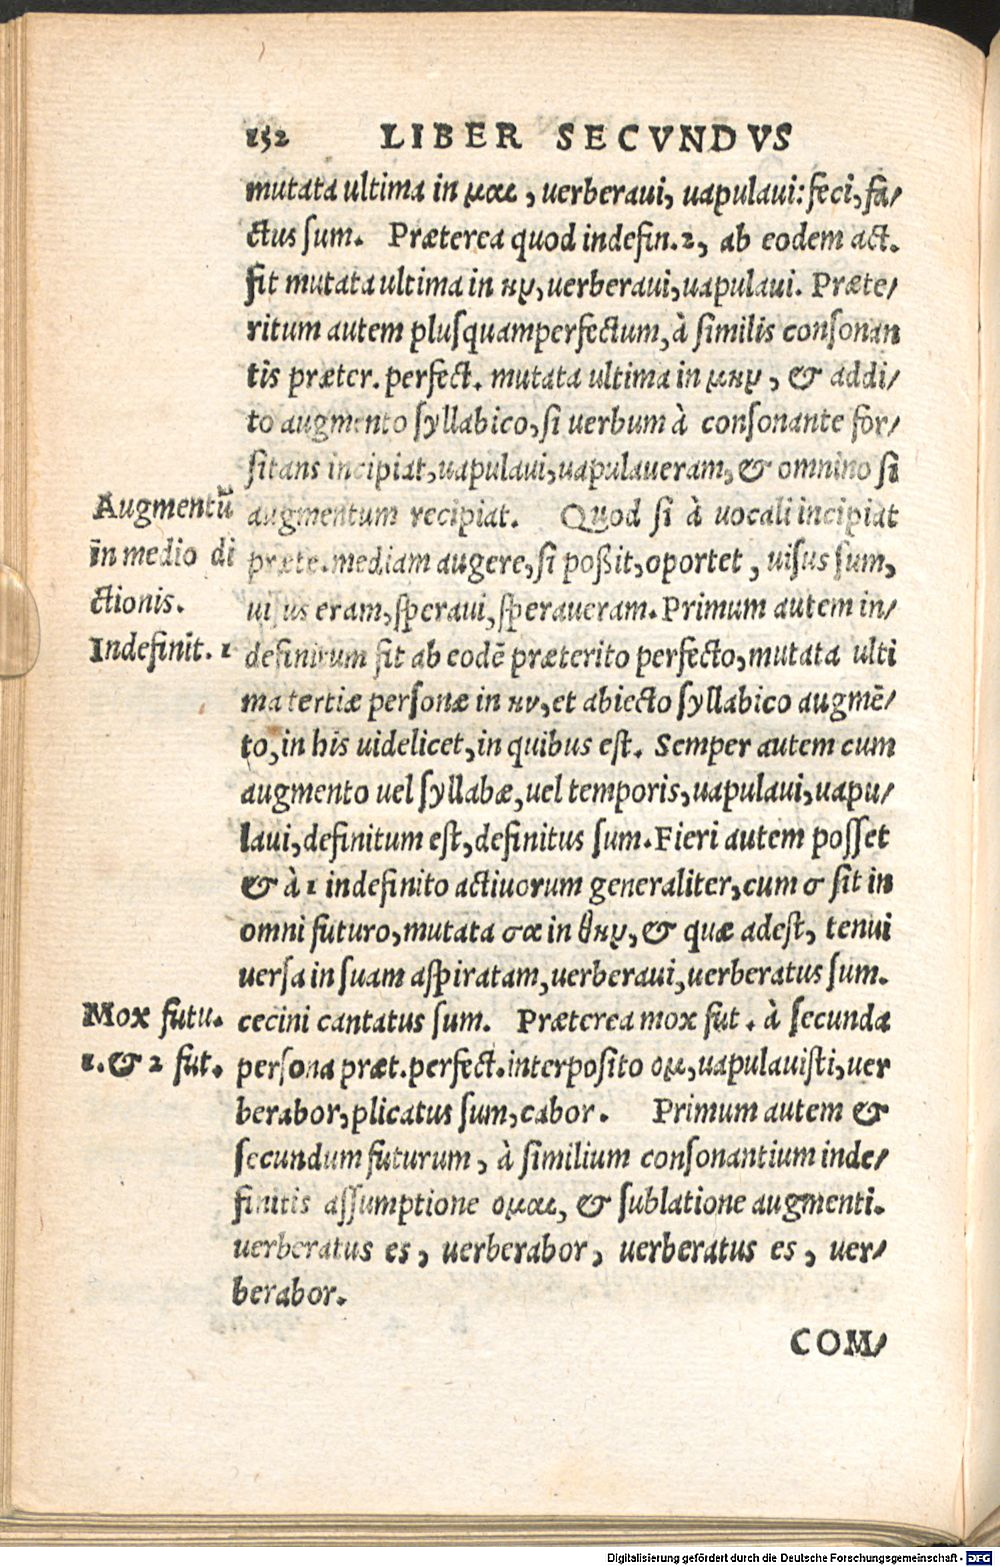 152 LIBER SECVNDVS
mutata ultima in μαι, uerberaui, uapulaui: feci, fa/
ctus sum. Præterea quod indefin. 2, ab eodem act.
fit mutata ultima in ην, uerberaui, uapulaui. Præte/
ritum autem plusquamperfectum, à similis consonan
tis præter. perfect. mutata ultima in μην, & addi/
to augmento syllabico, si uerbum à consonante for/
sitans incipiat, uapulaui, uapulaueram, & omnino si
Augmentū
in medio di
ctionis.
augmentum recipiat. Quod si à uocali incipiat
præte. mediam augere, si poßit, oportet, uisus sum,
uisus eram, speraui, speraueram. Primum autem in/
Indefinit. 1
definitum fit ab eodē præterito perfecto, mutata ulti
ma tertiæ personæ in ην, et abiecto syllabico augmē/
to, in his uidelicet, in quibus est. Semper autem cum
augmento uel syllabæ, uel temporis, uapulaui, uapu/
laui, definitum est, definitus sum. Fieri autem posset
& à 1 indefinito actiuorum generaliter, cum σ sit in
omni futuro, mutata σα in θην, & quæ adest, tenui
uersa in suam aspiratam, uerberaui, uerberatus sum.
Mox futu.
1. & 2 fut.
cecini cantatus sum. Præterea mox fut. à secunda
persona præt. perfect. interposito ομ, uapulauisti, uer
berabor, plicatus sum, cabor. Primum autem &
secundum futurum, à similium consonantium inde/
finitis assumptione ομαι, & sublatione augmenti.
uerberatus es, uerberabor, uerberatus es, uer/
berabor.
COM/
Digitalisierung gefördert durch die Deutsche Forschungsgemeinschaft - DFG